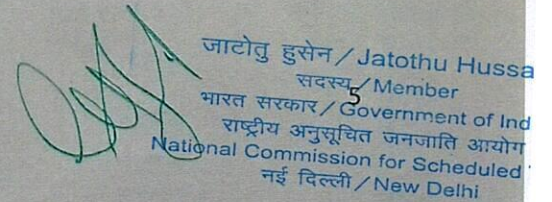 जाटोतु हुसेन / Jatothu Hussa
सदस्य / Member
5
भारत सरकार / Government of Ind
राष्ट्रीय अनुसूचित जनजाति आयोग
National Commission for Scheduled
नई दिल्ली / New Delhi